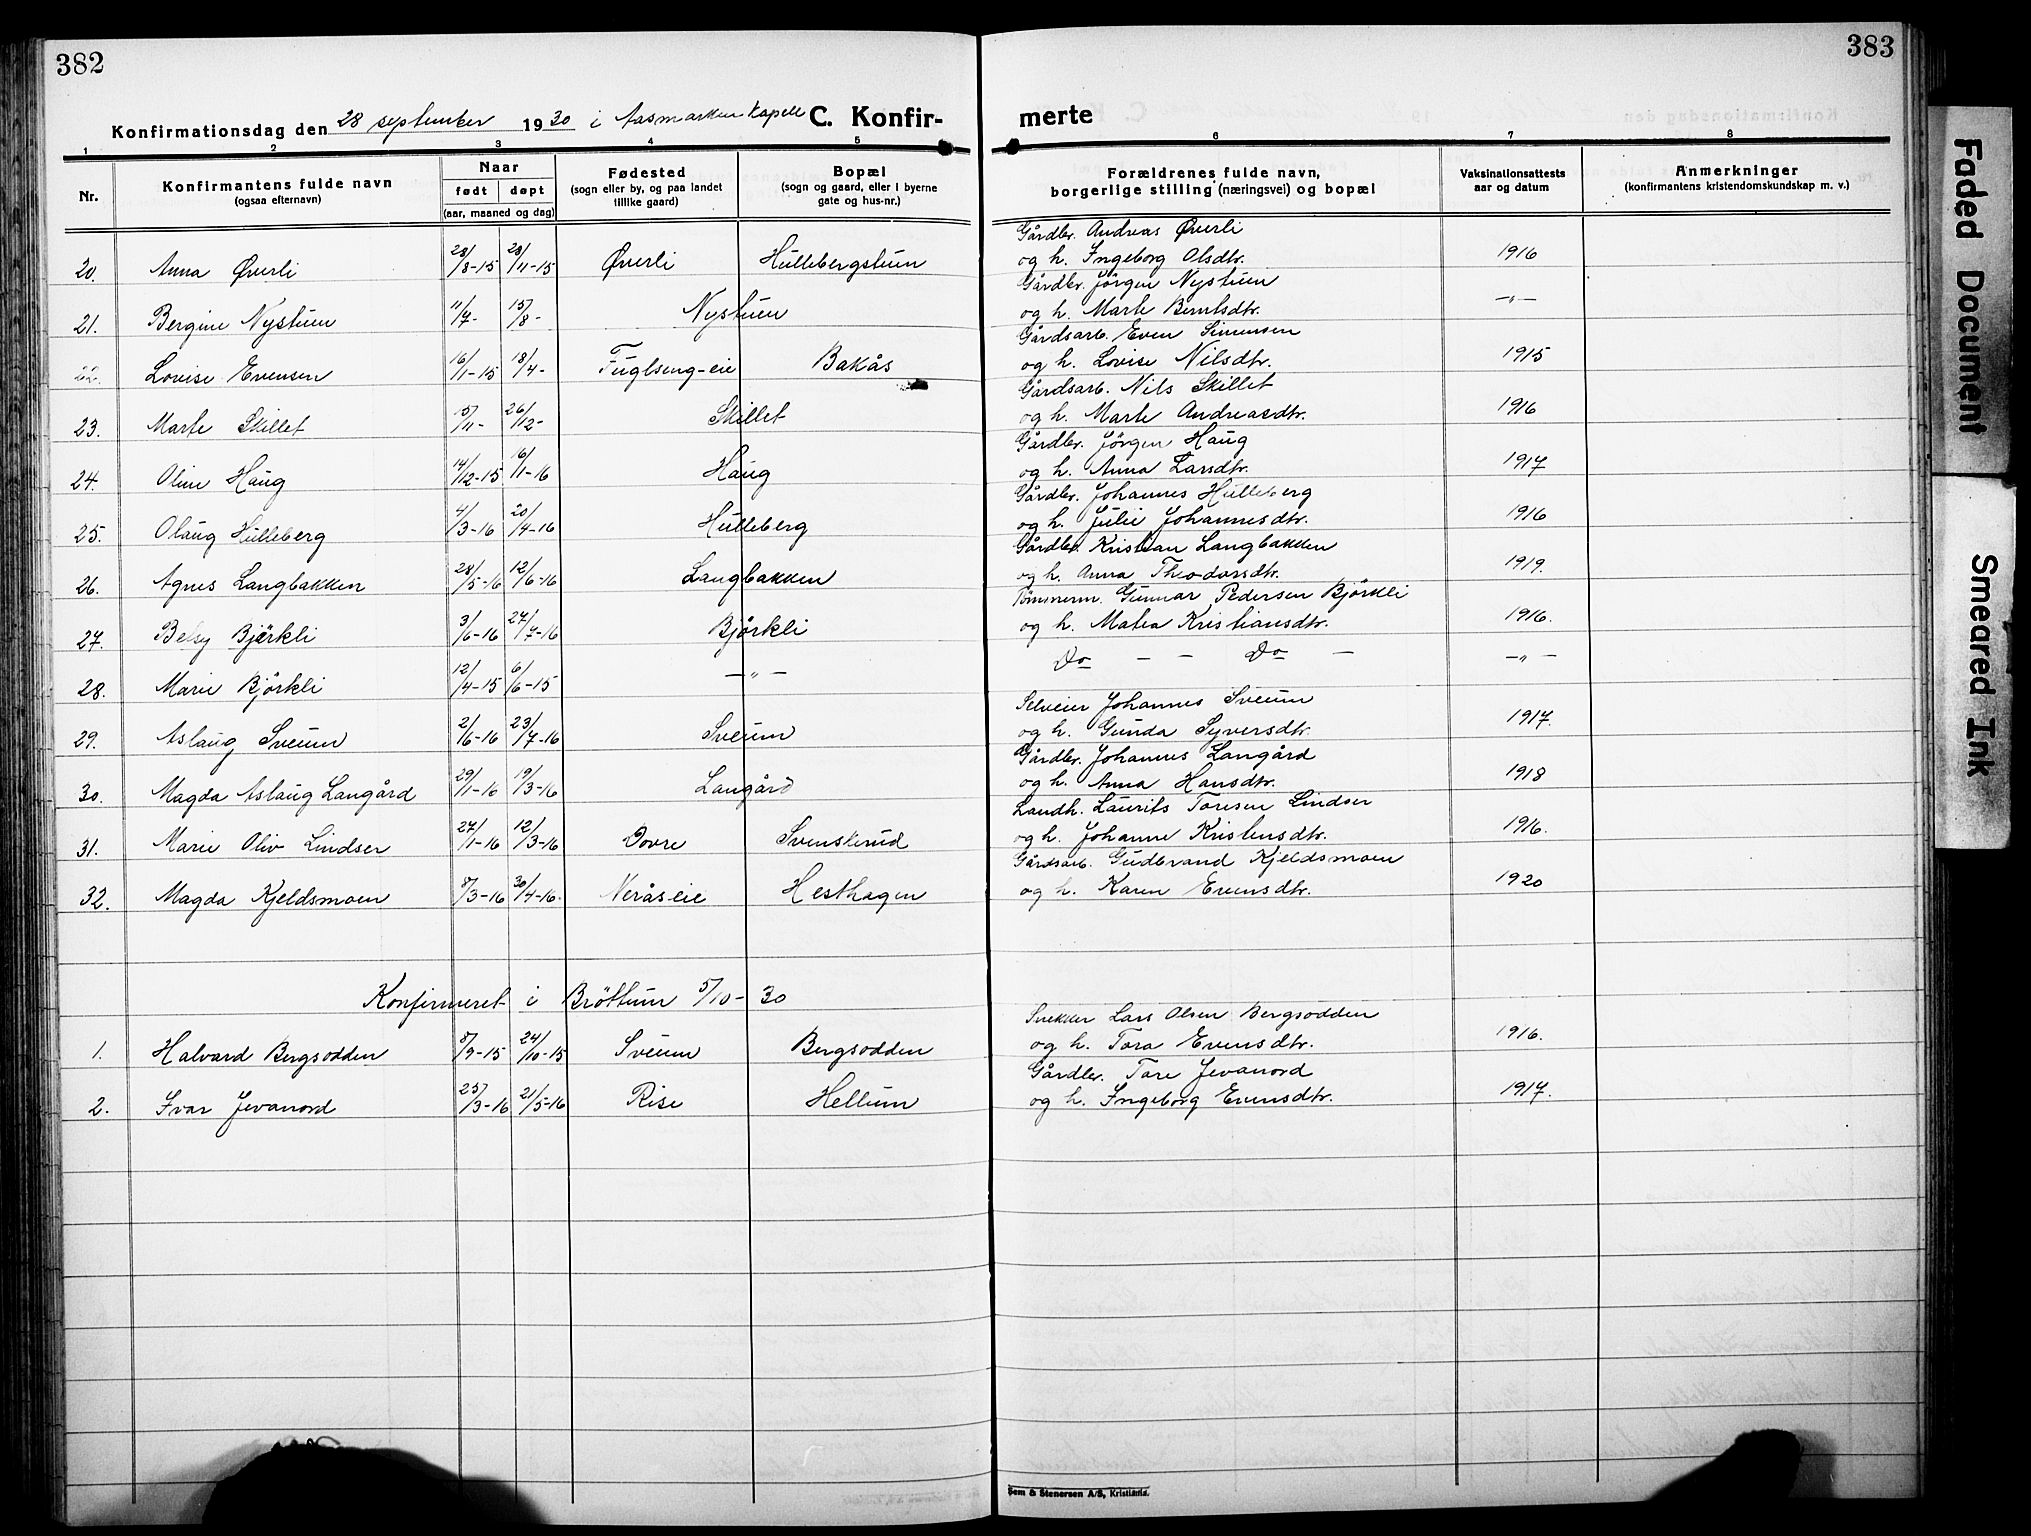 382
383
Konfirmationsdag den 28 september 1930 i Aasmarken Kapell C. Konfir- merte
1 2 3 4 5 6 7 8
Nr. Konfirmantens fulde navn (ogsaa efternavn) Naar født døpt (aar, maaned og dag) Fødested (sogn eller by, og paa landet tillike gaard) Bopæl (sogn og gaard, eller i byerne gate og hus-nr.) Forældrenes fulde navn, borgerlige stilling (næringsvei) og bopæl Vaksinationsattests aar og datum Anmerkninger (konfirmantens kristendomskundskap m. v.)
Gårdbr. Andreas Øverli
20. Anna Øverli 28/8-15 28/11-15 Øverli Hullebergstuen og h. Ingeborg Olsdtr. 1916
Gårdbr. Jörgen Nystuen
21. Bergine Nystuen 11/7- 15/8- Nystuen og h. Marte Berntsdtr. -"-
Gårdsarb. Even Simensen
22. Lovise Evensen 16/1-15 18/4- Fuglseng-eie Bakås og h. Lovise Nilsdtr. 1915
Gårdsarb. Nils Skillet
23. Marte Skillet 15/11- 26/12- Skillet og h. Marte Andreasdtr. 1916
Gårdbr. Jörgen Haug
24. Oline Haug 14/12-15 16/1-16 Haug og h. Anna Larsdtr. 1917
Gårdbr. Johannes Hulleberg
25. Olaug Hulleberg 4/3-16 20/4-16 Hulleberg og h. Julie Johannesdtr. 1916
Gårdbr. Kristian Langbakken
26. Agnes Langbakken 28/5-16 12/6-16 Langbakken og h. Anna Theodorsdtr. 1919.
Tömmerm. Gunnar Pedersen Björkli
27. Betsy Björkli 3/6-16 27/7-16 Björkli og h. Matea Kristiansdtr. 1916.
28. Marie Björkli 12/4-15 6/6-15 -"- Do - - Do - -"-
Selveier Johannes Sveum
29. Aslaug Sveum 2/6-16 23/7-16 Sveum og h. Gunda Syversdtr. 1917.
Gårdbr. Johannes Langård
30. Magda Aslaug Langård 29/1-16 19/3-16 Langård og h. Anna Hansdtr. 1918
Landh. Laurits Toresen Lindser
31. Marie Oliv Lindser 27/1-16 12/3-16 Dovre Svenskerud og h. Johanne Kristensdtr. 1916.
Gårdsarb. Gudbrand Kjeldsmoen
32. Magda Kjeldsmoen 8/3-16 30/4-16. Neråseie Hesthagen og h. Karen Evensdtr. 1920
Konfirmeret i Bröttum 5/10-30
Snekker Lars Olsen Bergsodden
1. Halvard Bergsodden 8/9-15 24/10-15 Sveum Bergsodden og h. Tora Evensdtr. 1916.
Gårdbr. Tore Jevanord
2. Ivar Jevanord 25/3-16 21/5-16 Rise Hellum og h. Ingeborg Evensdtr. 1917.
Sem & Stenersen A/S, Kristiania.
Faded Document
Smeared Ink